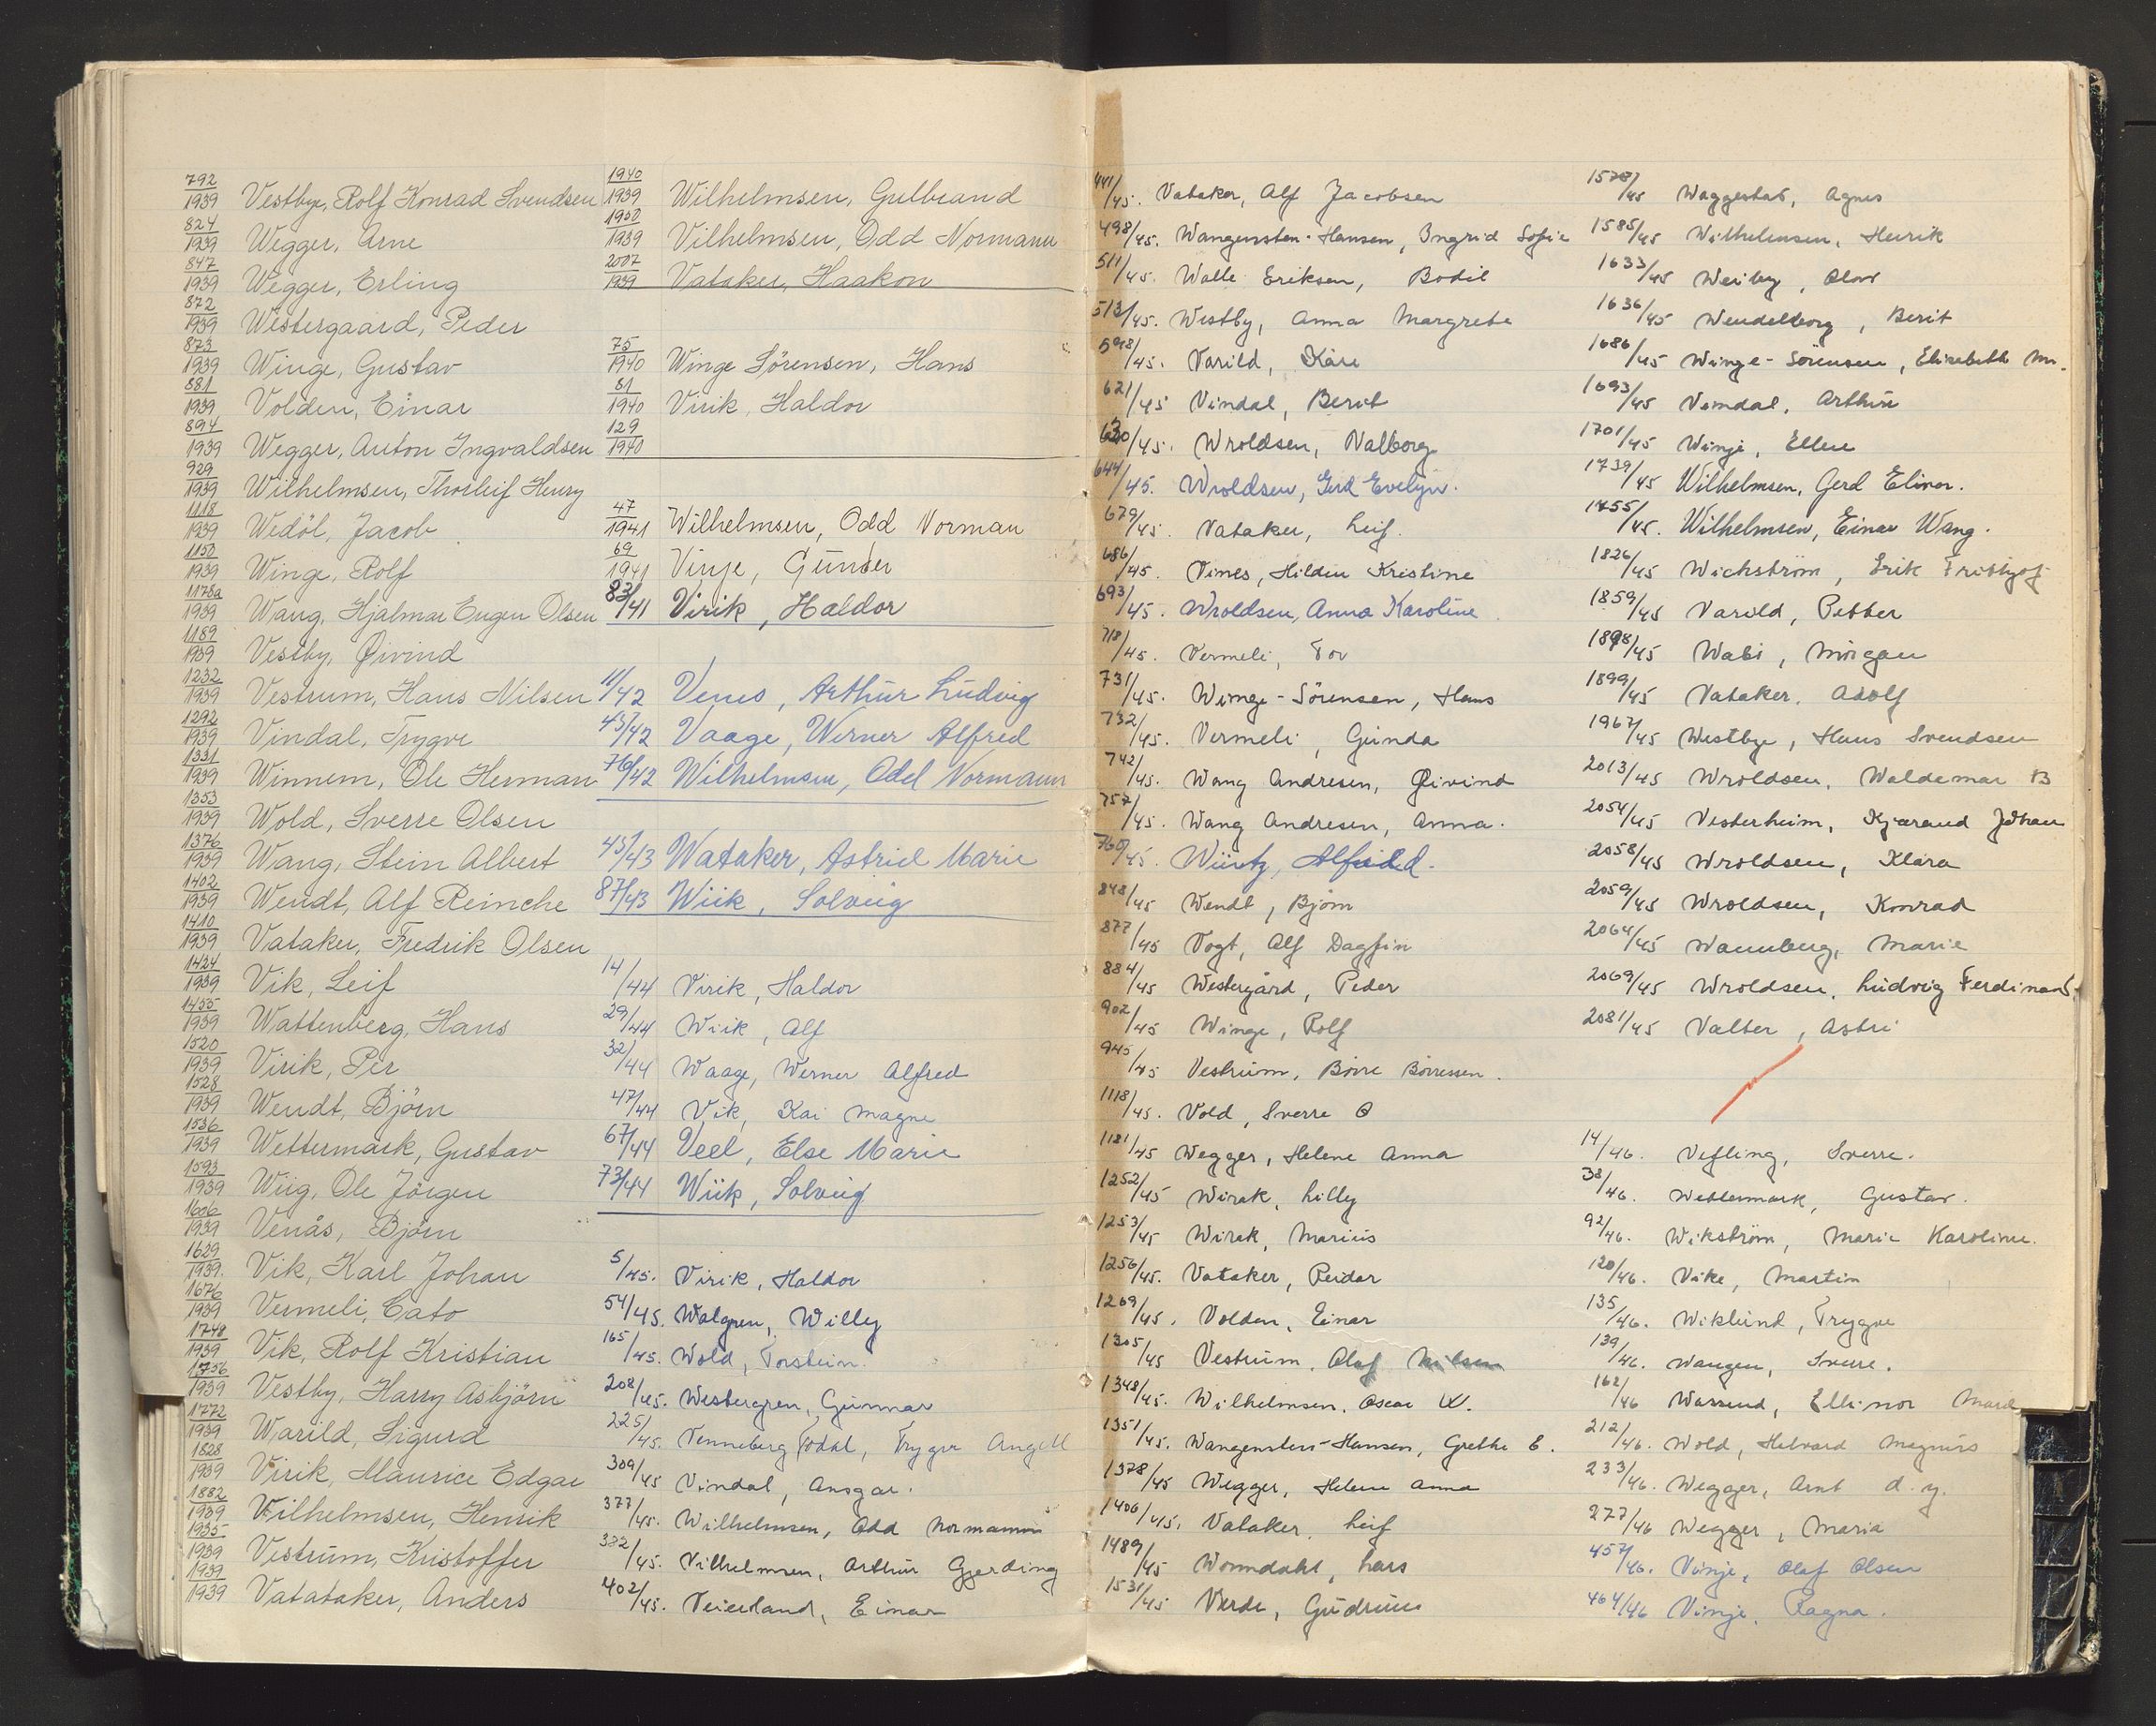 792/1939 Vestbye, Rolf Konrad Svendsen
824/1939 Wegger, Arne
847/1939 Wegger, Erling
872/1939 Westergaard, Peder
873/1939 Winge, Gustav
881/1939 Volden, Einar
894/1939 Wegger, Anton Ingvaldsen
929/1939 Wilhelmsen, Thorleif Henry
1118/1939 Wedöl, Jacob
1150/1939 Winge, Rolf
1178a/1939 Wang, Hjalmar Eugen Olsen
1189/1939 Vestby, Øivind
1232/1939 Vestrum, Hans Nilsen
1292/1939 Vindal, Trygve
1331/1939 Winnem, Ole Herman
1353/1939 Wold, Sverre Olsen
1376/1939 Wang, Stein Albert
1402/1939 Wendt, Alf Reinche
1410/1939 Vataker, Fredrik Olsen
1424/1939 Vik, Leif
1455/1939 Wattenberg, Hans
1520/1939 Virik, Per
1528/1939 Wendt, Björn
1536/1939 Wettermark, Gustav
1593/1939 Wiig, Ole Jörgen
1606/1939 Venås, Björn
1629/1939. Vik, Karl Johan
1676/1939 Vermeli, Cato
1748/1939 Vik, Rolf Kristian
1756/1939 Vestby, Harry Asbjörn
1772/1939 Warild, Sigurd
1828/1939 Virik, Maurice Edgar
1882/1939 Vilhelmsen, Henrik
1935/1939 Vestrum, Kristoffer
1939/1939 Vatataker, Anders
1940/1939 Wilhelmsen, Gulbrand
1950/1939 Vilhelmsen, Odd Normann
2007/1939 Vataker, Haakon
75/1940 Winge Sörensen, Hans
81/1940 Virik, Haldor
129/1940
47/1941 Wilhelmsen, Odd Norman
69/1941 Vinje, Gunder
83/41 Virik, Haldor
11/42 Venes, Arthur Ludvig
43/42 Vaage, Werner Alfred
76/42 Wilhelmsen, Odd Normann
43/43 Wataker, Astrid Marie
87/43 Wiik, Solveig
14/44 Virik, Haldor
29/44 Wiik, Alf
32/44 Waage, Werner Alfred
47/44 Vik, Kai Magne
67/44 Veel, Else Marie
73/44 Wiik, Solveig
5/45. Virik, Haldor
54/45. Walgren, Willy
165/45. Wold, Torstein.
208/45. Westergren, Gunnar
225/45. Venneberg Todal, Trygve Angell
309/45 Vindal, Ansgar.
377/45. Wilhelmsen, Odd Normann
382/45. Vilhelmsen, Arthur Gjerding
402/45. Veierland, Einar
441/45. Vataker, Alf Jacobsen
498/45. Wangensten-Hansen, Ingrid Sofie
511/45. Walle Eriksen, Bodil
513/45. Westby, Anna Margrete
598/45. Varild, Kåre
621/45 Vindal, Berit
630/45. Wroldsen, Valborg
644/45. Wroldsen, Gerd Evelyn.
679/45. Vataker, Leif.
686/45. Vimes, Hildin Kristine
693/45. Wroldsen, Anna Karoline
718/45. Vermeli, Tor
731/45. Winge-Sörensen, Hans
732/45. Vermeli, Gunda
742/45. Wang Andresen, Øivind
757/45. Wang Andresen, Anna.
760/45. Würtz, Alfhild.
848/45 Wendt, Bjørn
877/45 Vogt, Alf Dagfin
884/45 Westergård, Peder
902/45 Winge, Rolf
945/45 Vestrum, Börre Börressen.
1118/45. Vold, Sverre O
1181/45 Wegger, Helene Anna
1252/45 Wirak, Lilly
1253/45 Wirak, Marius
1256/45. Vataker, Reidar
1269/45. Volden, Einar
1305/45 Vestrum, Olaf Nilsen
1348/45. Wilhelmsen, Oscar W.
1351/45. Wangensten-Hansen, Grethe E.
1378/45 Wegger, Helene Anna
1406/45. Vataker, Leif
1489/45 Wonndahl, Lars
1531/45 Verde, Gudrun
1578/45 Waggestad, Agnes
1585/45 Wilhelmsen, Henrik
1633/45 Weiby, Olav
1636/45 Wendelborg, Berit
1686/45 Winge-Sörensen, Elisabeth M.
1693/45 Vemdal, Arthur
1701/45 Winje, Ellen
1739/45 Wilhelmsen, Gerd Elinor.
1755/45. Wilhelmsen, Einar Wang.
1826/45 Wickström, Erik Frithjof
1859/45 Varild, Petter
1898/45 Wabi, Morgan
1899/45 Vataker, Adolf
1967/45 Westbye, Hans Svendsen
2013/45 Wroldsen, Waldemar B
2054/45 Vesterheim, Kjærand Johan
2058/45 Wroldsen, Klara
2059/45 Wroldsen, Konrad
2064/45 Wannberg, Marie
2069/45 Wroldsen, Ludvig Ferdinand.
2081/45 Valter, Astri
14/46. Vefling, Sverre.
38/46. Wettermark, Gustav.
92/46. Wikström, Marie Karoline.
120/46. Vike, Martin
135/46. Wiklund, Trygve
139/46. Wangen, Sverre.
162/46 Warrund, Ellinor Marie
212/46. Wold, Halvard Magnus
233/46. Wegger, Arnt d.y.
277/46 Wegger, Maria
457/46. Vinje, Olaf Olsen
464/46 Vinje, Ragna.